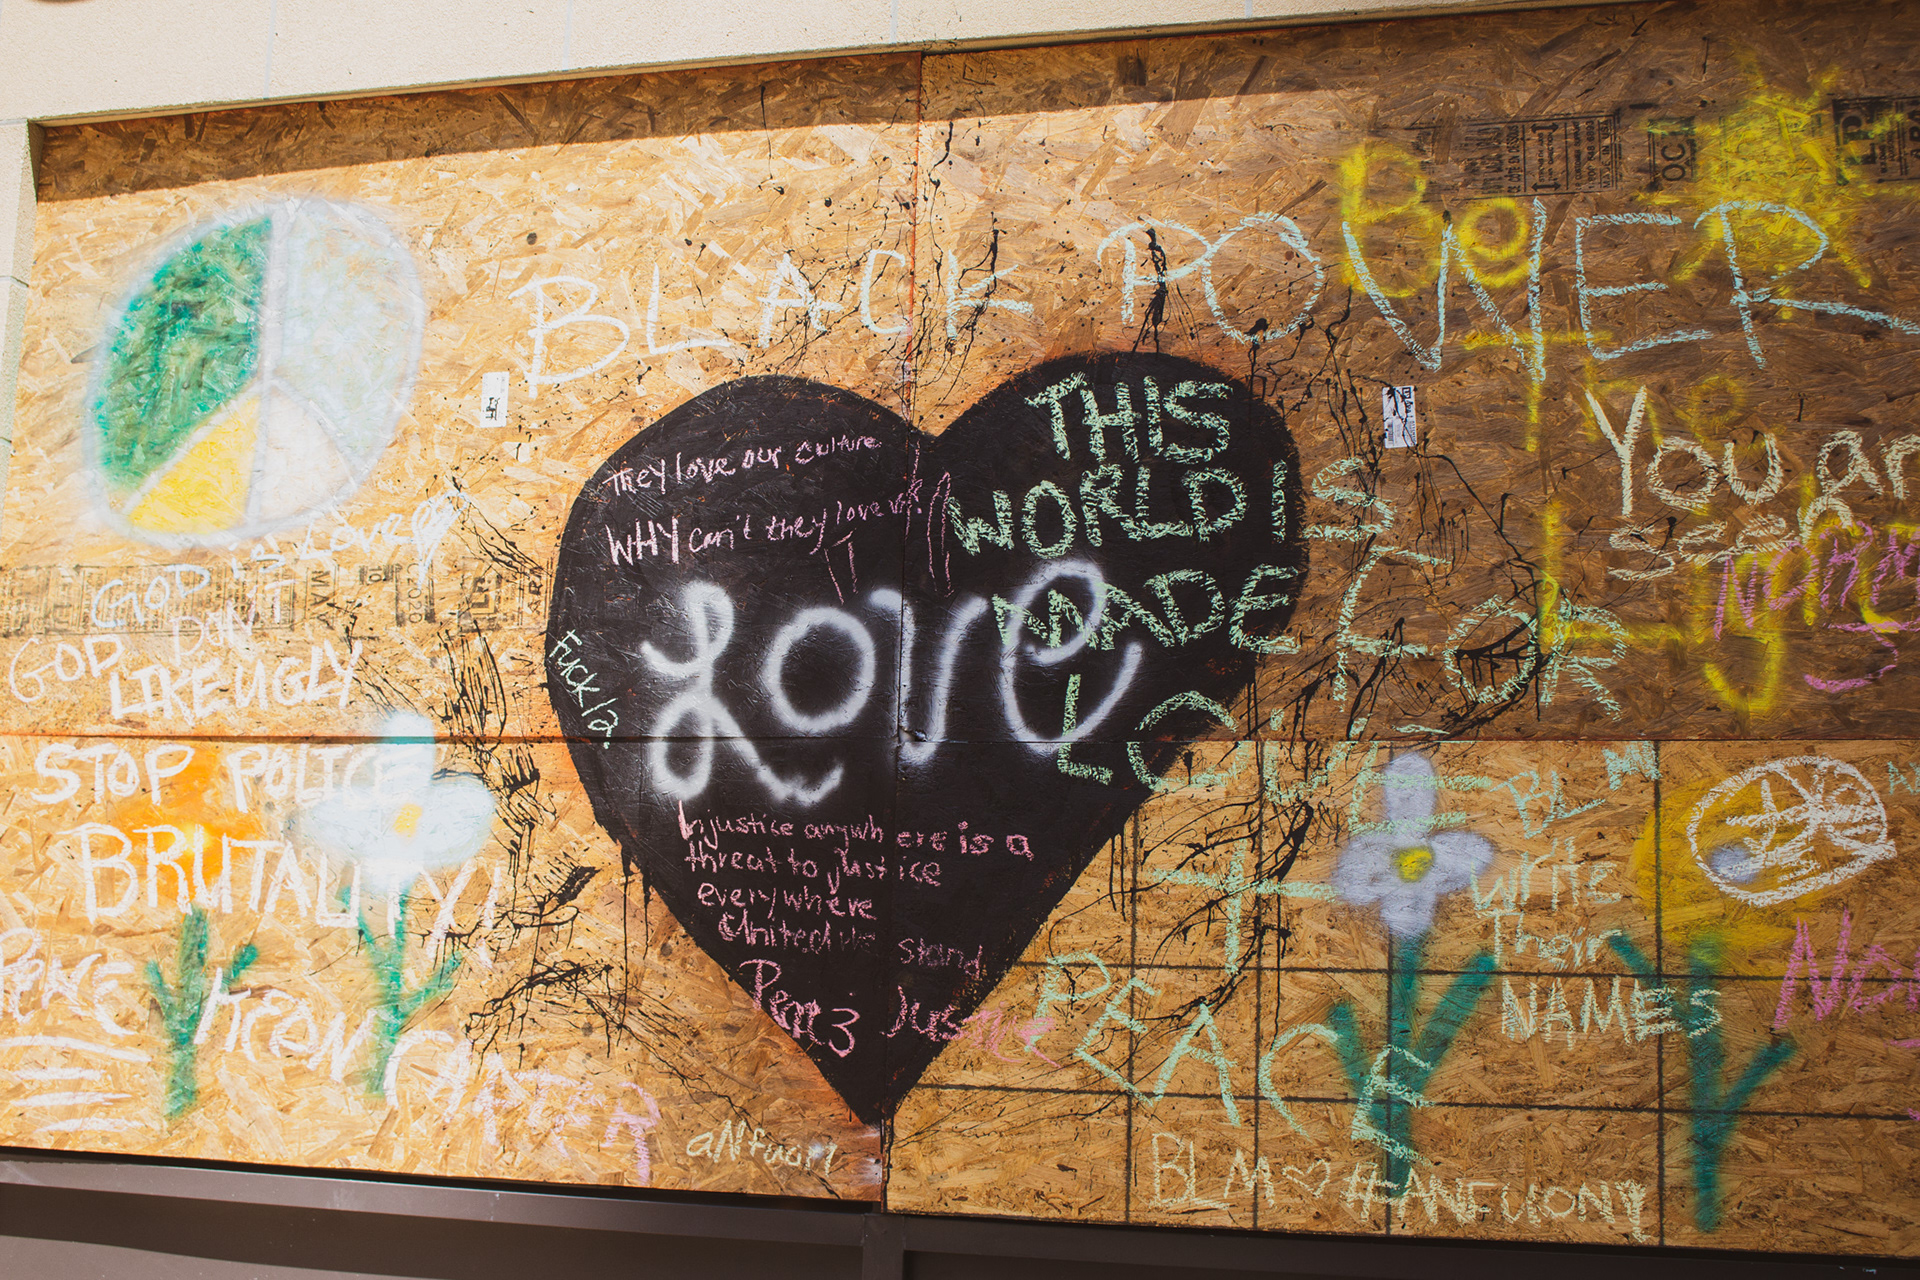 BLACK POWER
Be
the
Light
You are
seen
They love our culture
WHY can't they love us?
THIS
WORLD IS
MADE FOR
LOVE
+
PEACE
Love
GOD is Love
GOD DON'T
LIKE UGLY
FUCK 12.
STOP POLICE
BRUTALITY!
Injustice anywhere is a
threat to justice
everywhere
United we stand
Justice
KEON
BLM
Write
Their
NAMES
BLM ♡ #ANFUONY